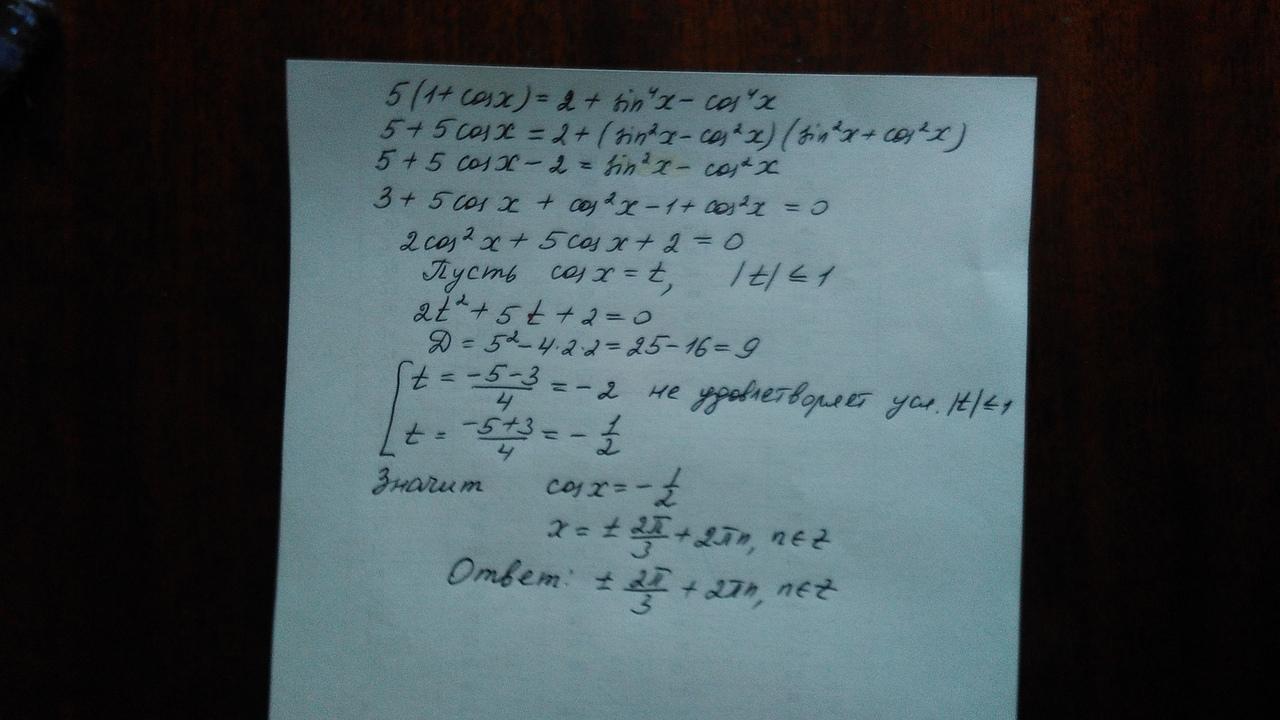 5(1+cosx)=2+sin⁴x-cos⁴x
5+5cosx=2+(sin²x-cos²x)(sin²x+cos²x)
5+5cosx-2=sin²x-cos²x
3+5cosx+cos²x-1+cos²x=0
2cos²x+5cosx+2=0
Пусть cosx=t, |t|≤1
2t²+5t+2=0
D=5²-4·2·2=25-16=9
[t=(-5-3)/4=-2 не удовлетворяет усл. |t|≤1
t=(-5+3)/4=-1/2
Значит cosx=-1/2
x=±2π/3+2πn, n∈Z
Ответ: ±2π/3+2πn, n∈Z